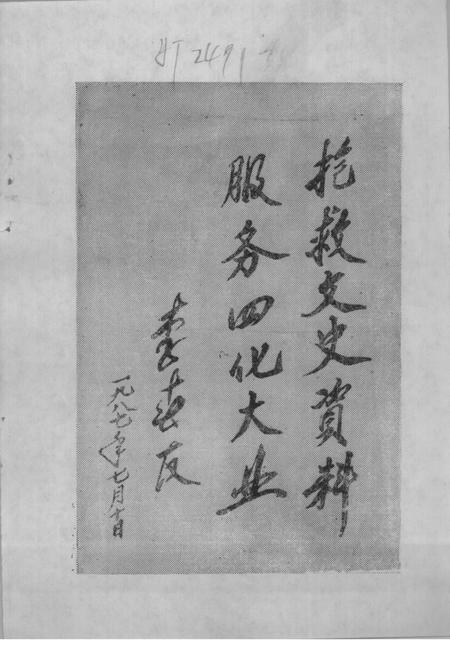 抢救文史資料
服务四化大业
李春友
一九八七年七月十日
2491